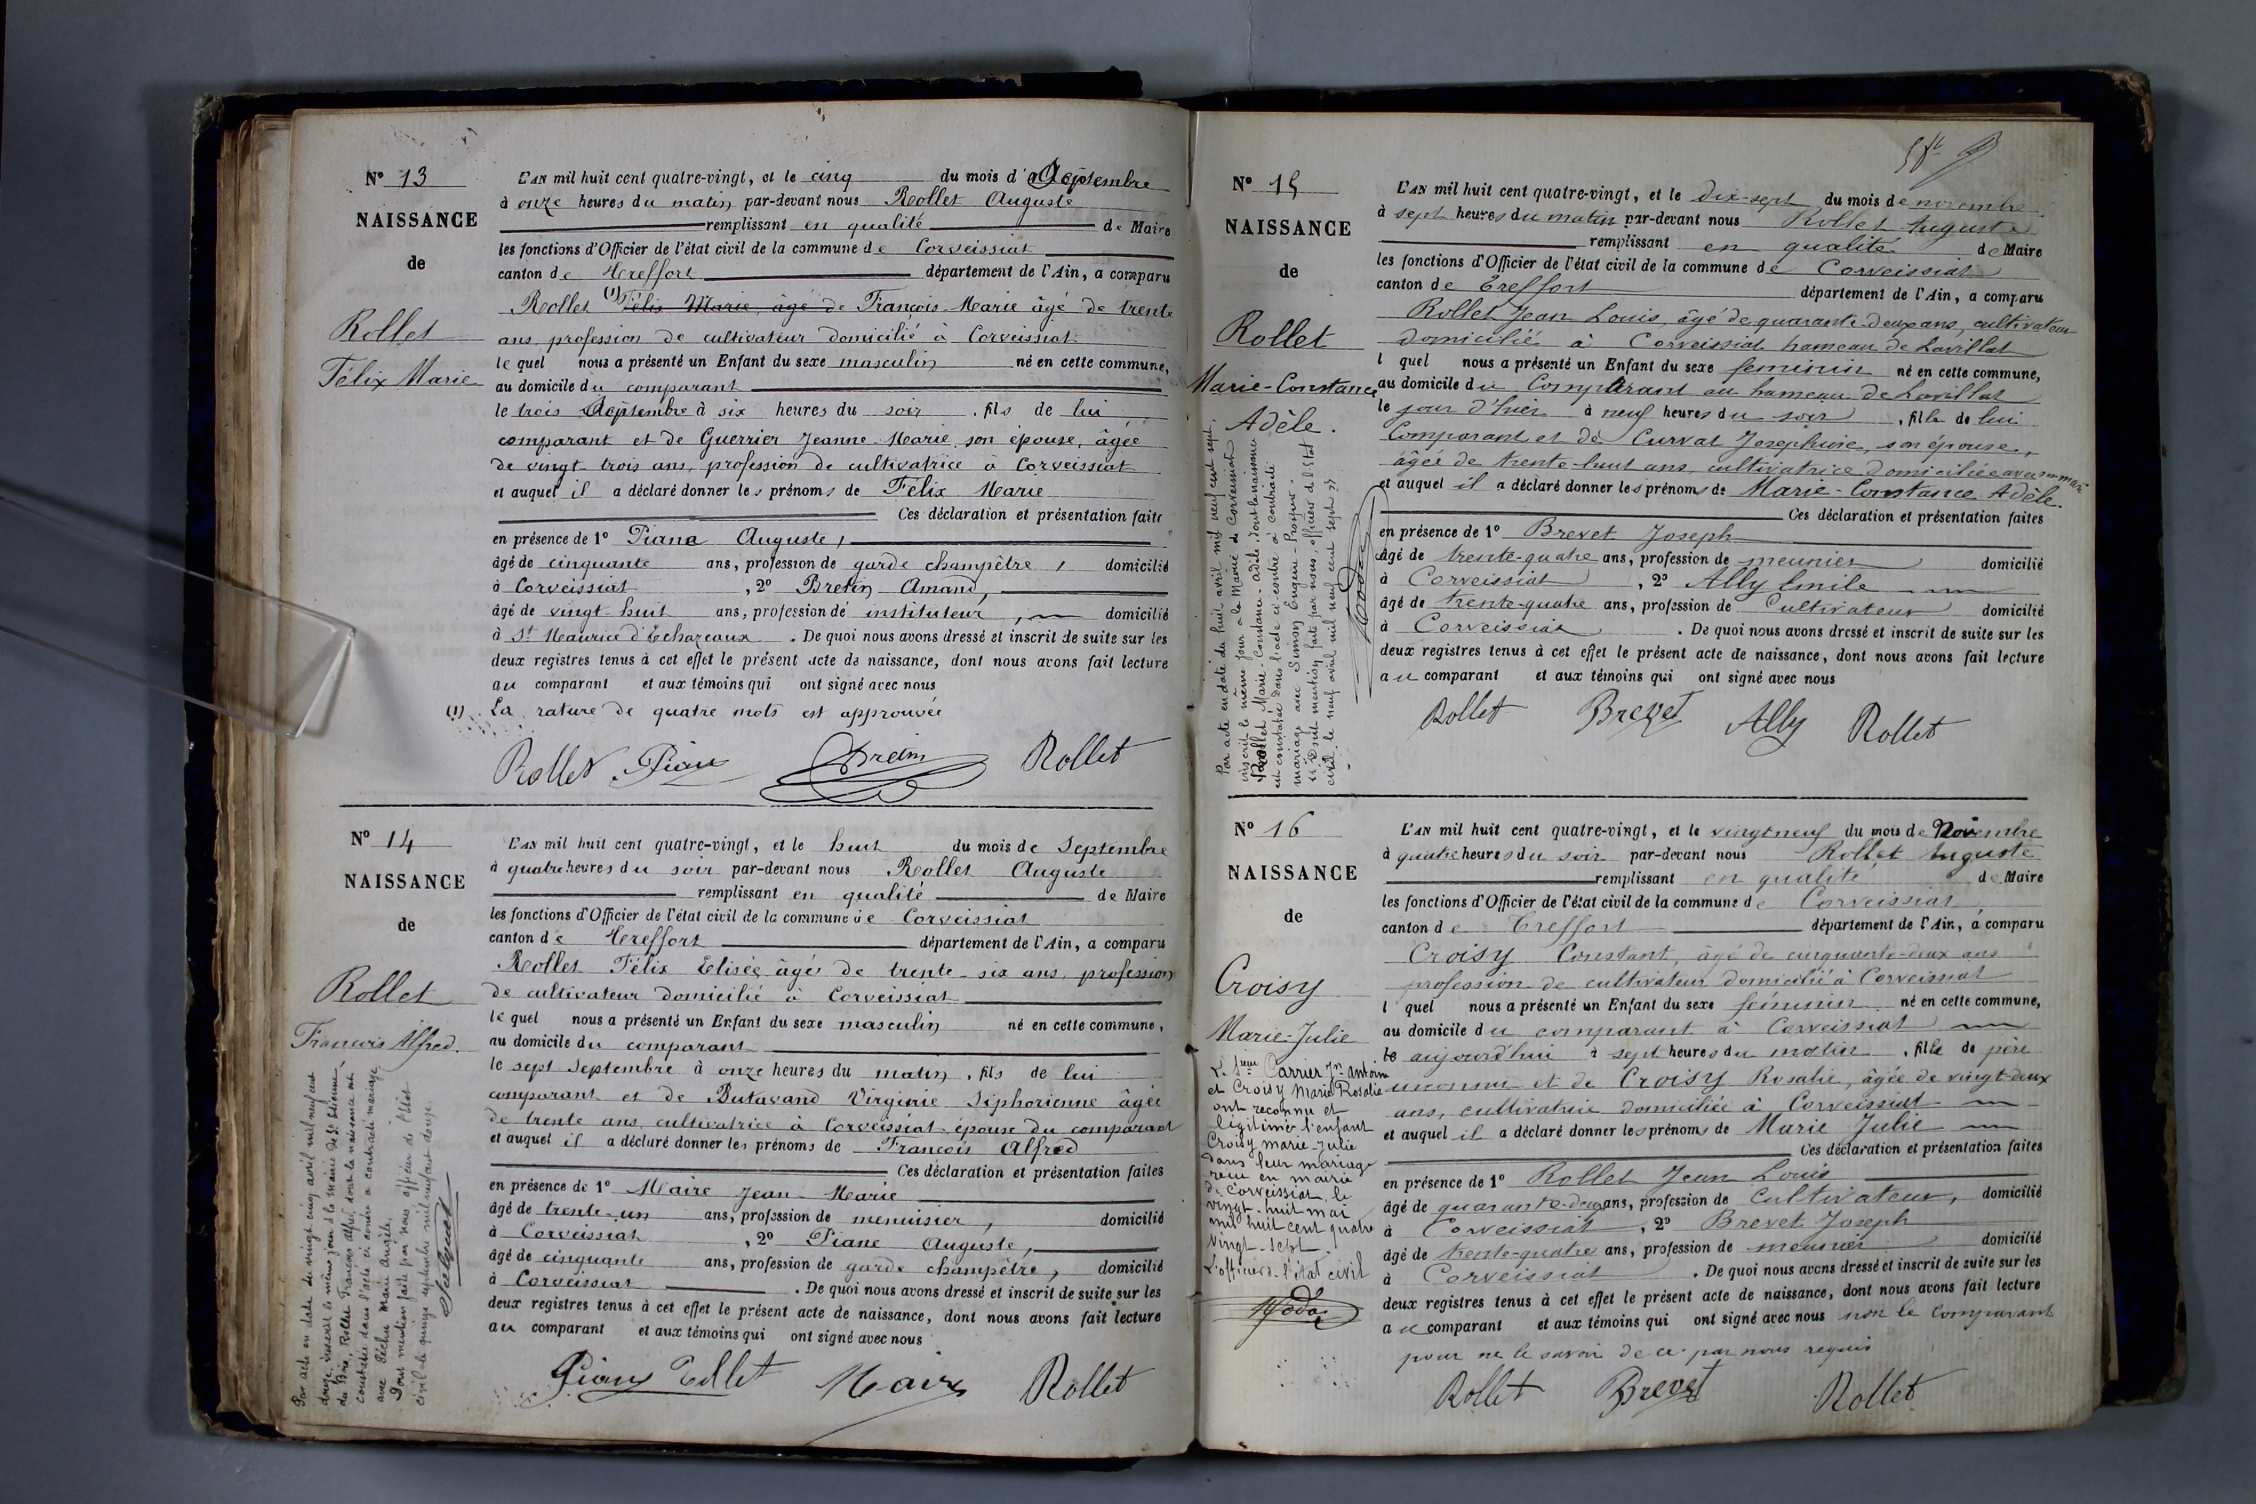 N° 13
NAISSANCE
de
Rollet
Félix Marie
L'AN mil huit cent quatre-vingt, et le cinq du mois d Septembre
à onze heures du matin par-devant nous Rollet Auguste
remplissant en qualité de Maire
les fonctions d'Officier de l'état civil de la commune de Corveissiat
canton de Treffort département de l'Ain, a comparu
Rollet (1) Félix Marie, âgé de François Marie âgé de trente
ans, profession de cultivateur domicilié à Corveissiat
lequel nous a présenté un Enfant du sexe masculin né en cette commune,
au domicile du comparant
le trois Septembre à six heures du soir, fils de lui
comparant et de Guerrier Jeanne Marie, son épouse, âgée
de vingt trois ans, profession de cultivatrice à Corveissiat
et auquel il a déclaré donner les prénoms de Félix Marie
Ces déclaration et présentation faite
en présence de 1° Piana Auguste,
âgé de cinquante ans, profession de garde champêtre, domicilié
à Corveissiat, 2° Bretin Amand,
âgé de vingt huit ans, profession de instituteur, domicilié
à St Maurice d'Echazeaux. De quoi nous avons dressé et inscrit de suite sur les
deux registres tenus à cet effet le présent acte de naissance, dont nous avons fait lecture
au comparant et aux témoins qui ont signé avec nous
(1) La rature de quatre mots est approuvée
Rollet Pian Bretin Rollet
N° 14
NAISSANCE
de
Rollet
François Alfred.
Par acte en date du vingt cinq avril mil neuf cent
douze, inscrit le même jour à la mairie de St Etienne
du Bois, Rollet François Alfred, dont la naissance est
constatée dans l'acte ci contre a contracté mariage
avec Péchu Marie Angèle.
Dont mention faite par nous officier de l'Etat
civil le quinze septembre mil neuf cent douze.
L'AN mil huit cent quatre-vingt, et le huit du mois de Septembre
à quatre heures du soir par-devant nous Rollet Auguste
remplissant en qualité de Maire
les fonctions d'Officier de l'état civil de la commune de Corveissiat
canton de Treffort département de l'Ain, a comparu
Rollet Félix Elisée âgé de trente-six ans, profession
de cultivateur domicilié à Corveissiat
lequel nous a présenté un Enfant du sexe masculin né en cette commune,
au domicile du comparant
le sept Septembre à onze heures du matin, fils de lui
comparant et de Butavand Virginie Siphorienne âgée
de trente ans, cultivatrice à Corveissiat, épouse du comparant
et auquel il a déclaré donner les prénoms de François Alfred
Ces déclaration et présentation faites
en présence de 1° Maire Jean-Marie
âgé de trente-un ans, profession de menuisier, domicilié
à Corveissiat, 2° Piane Auguste,
âgé de cinquante ans, profession de garde champêtre, domicilié
à Corveissiat. De quoi nous avons dressé et inscrit de suite sur les
deux registres tenus à cet effet le présent acte de naissance, dont nous avons fait lecture
au comparant et aux témoins qui ont signé avec nous
Pian Rollet Maire Rollet
N° 15
NAISSANCE
de
Rollet
Marie-Constance
Adèle.
Par acte en date du huit avril mil neuf cent sept,
inscrit le même jour à la Mairie de Corveissiat
Rollet Marie-Constance-Adèle dont la naissance
est constatée dans l'acte ci-contre a contracté
mariage avec Simon Eugène-Prosper.
Dont mention faite par nous, officier de l'Etat
civil, le neuf avril mil neuf cent sept
L'AN mil huit cent quatre-vingt, et le Dix-sept du mois de novembre
à sept heures du matin par-devant nous Rollet Auguste
remplissant en qualité de Maire
les fonctions d'Officier de l'état civil de la commune de Corveissiat
canton de Treffort département de l'Ain, a comparu
Rollet Jean Louis, âgé de quarante-deux ans, cultivateur
domicilié à Corveissiat hameau de Lavillat
l quel nous a présenté un Enfant du sexe feminin né en cette commune,
au domicile du Comparant au hameau de Lavillat
le jour d'hier à neuf heures du soir, fille de lui
Comparant et de Curvat Josephine, son épouse,
âgée de trente-huit ans, cultivatrice domiciliée avec son mari
et auquel il a déclaré donner les prénoms de Marie-Constance Adèle.
Ces déclaration et présentation faites
en présence de 1° Brevet Joseph
âgé de trente-quatre ans, profession de meunier domicilié
à Corveissiat, 2° Ally Emile
âgé de trente-quatre ans, profession de Cultivateur domicilié
à Corveissiat. De quoi nous avons dressé et inscrit de suite sur les
deux registres tenus à cet effet le présent acte de naissance, dont nous avons fait lecture
au comparant et aux témoins qui ont signé avec nous
Rollet Brevet Ally Rollet
N° 16
NAISSANCE
de
Croisy
Marie-Julie
Carrier Jn Antoine
et Croisy Marie Rosalie
ont reconnu et
légitimé l'enfant
Croisy Marie-Julie
dans leur mariage
reçu en mairie
de Corveissiat, le
vingt-huit mai
mil huit cent quatre
vingt-sept.
L'officier de l'état civil
L'AN mil huit cent quatre-vingt, et le vingt neuf du mois de Novembre
à quatre heures du soir par-devant nous Rollet Auguste
remplissant en qualité de Maire
les fonctions d'Officier de l'état civil de la commune de Corveissiat
canton de Treffort département de l'Ain, a comparu
Croisy Constant, âgé de cinquante-deux ans
profession de cultivateur domicilié à Corveissiat
l quel nous a présenté un Enfant du sexe féminin né en cette commune,
au domicile du comparant à Corveissiat
le aujourd'hui à sept heures du matin, fille de père
inconnu et de Croisy Rosalie, âgée de vingt-deux
ans, cultivatrice domiciliée à Corveissiat
et auquel il a déclaré donner les prénoms de Marie Julie
Ces déclaration et présentation faites
en présence de 1° Rollet Jean Louis
âgé de quarante-deux ans, profession de Cultivateur, domicilié
à Corveissiat, 2° Brevet Joseph
âgé de trente-quatre ans, profession de meunier domicilié
à Corveissiat. De quoi nous avons dressé et inscrit de suite sur les
deux registres tenus à cet effet le présent acte de naissance, dont nous avons fait lecture
au comparant et aux témoins qui ont signé avec nous non le Comparant
pour ne le savoir de ce par nous requis
Rollet Brevet Rollet